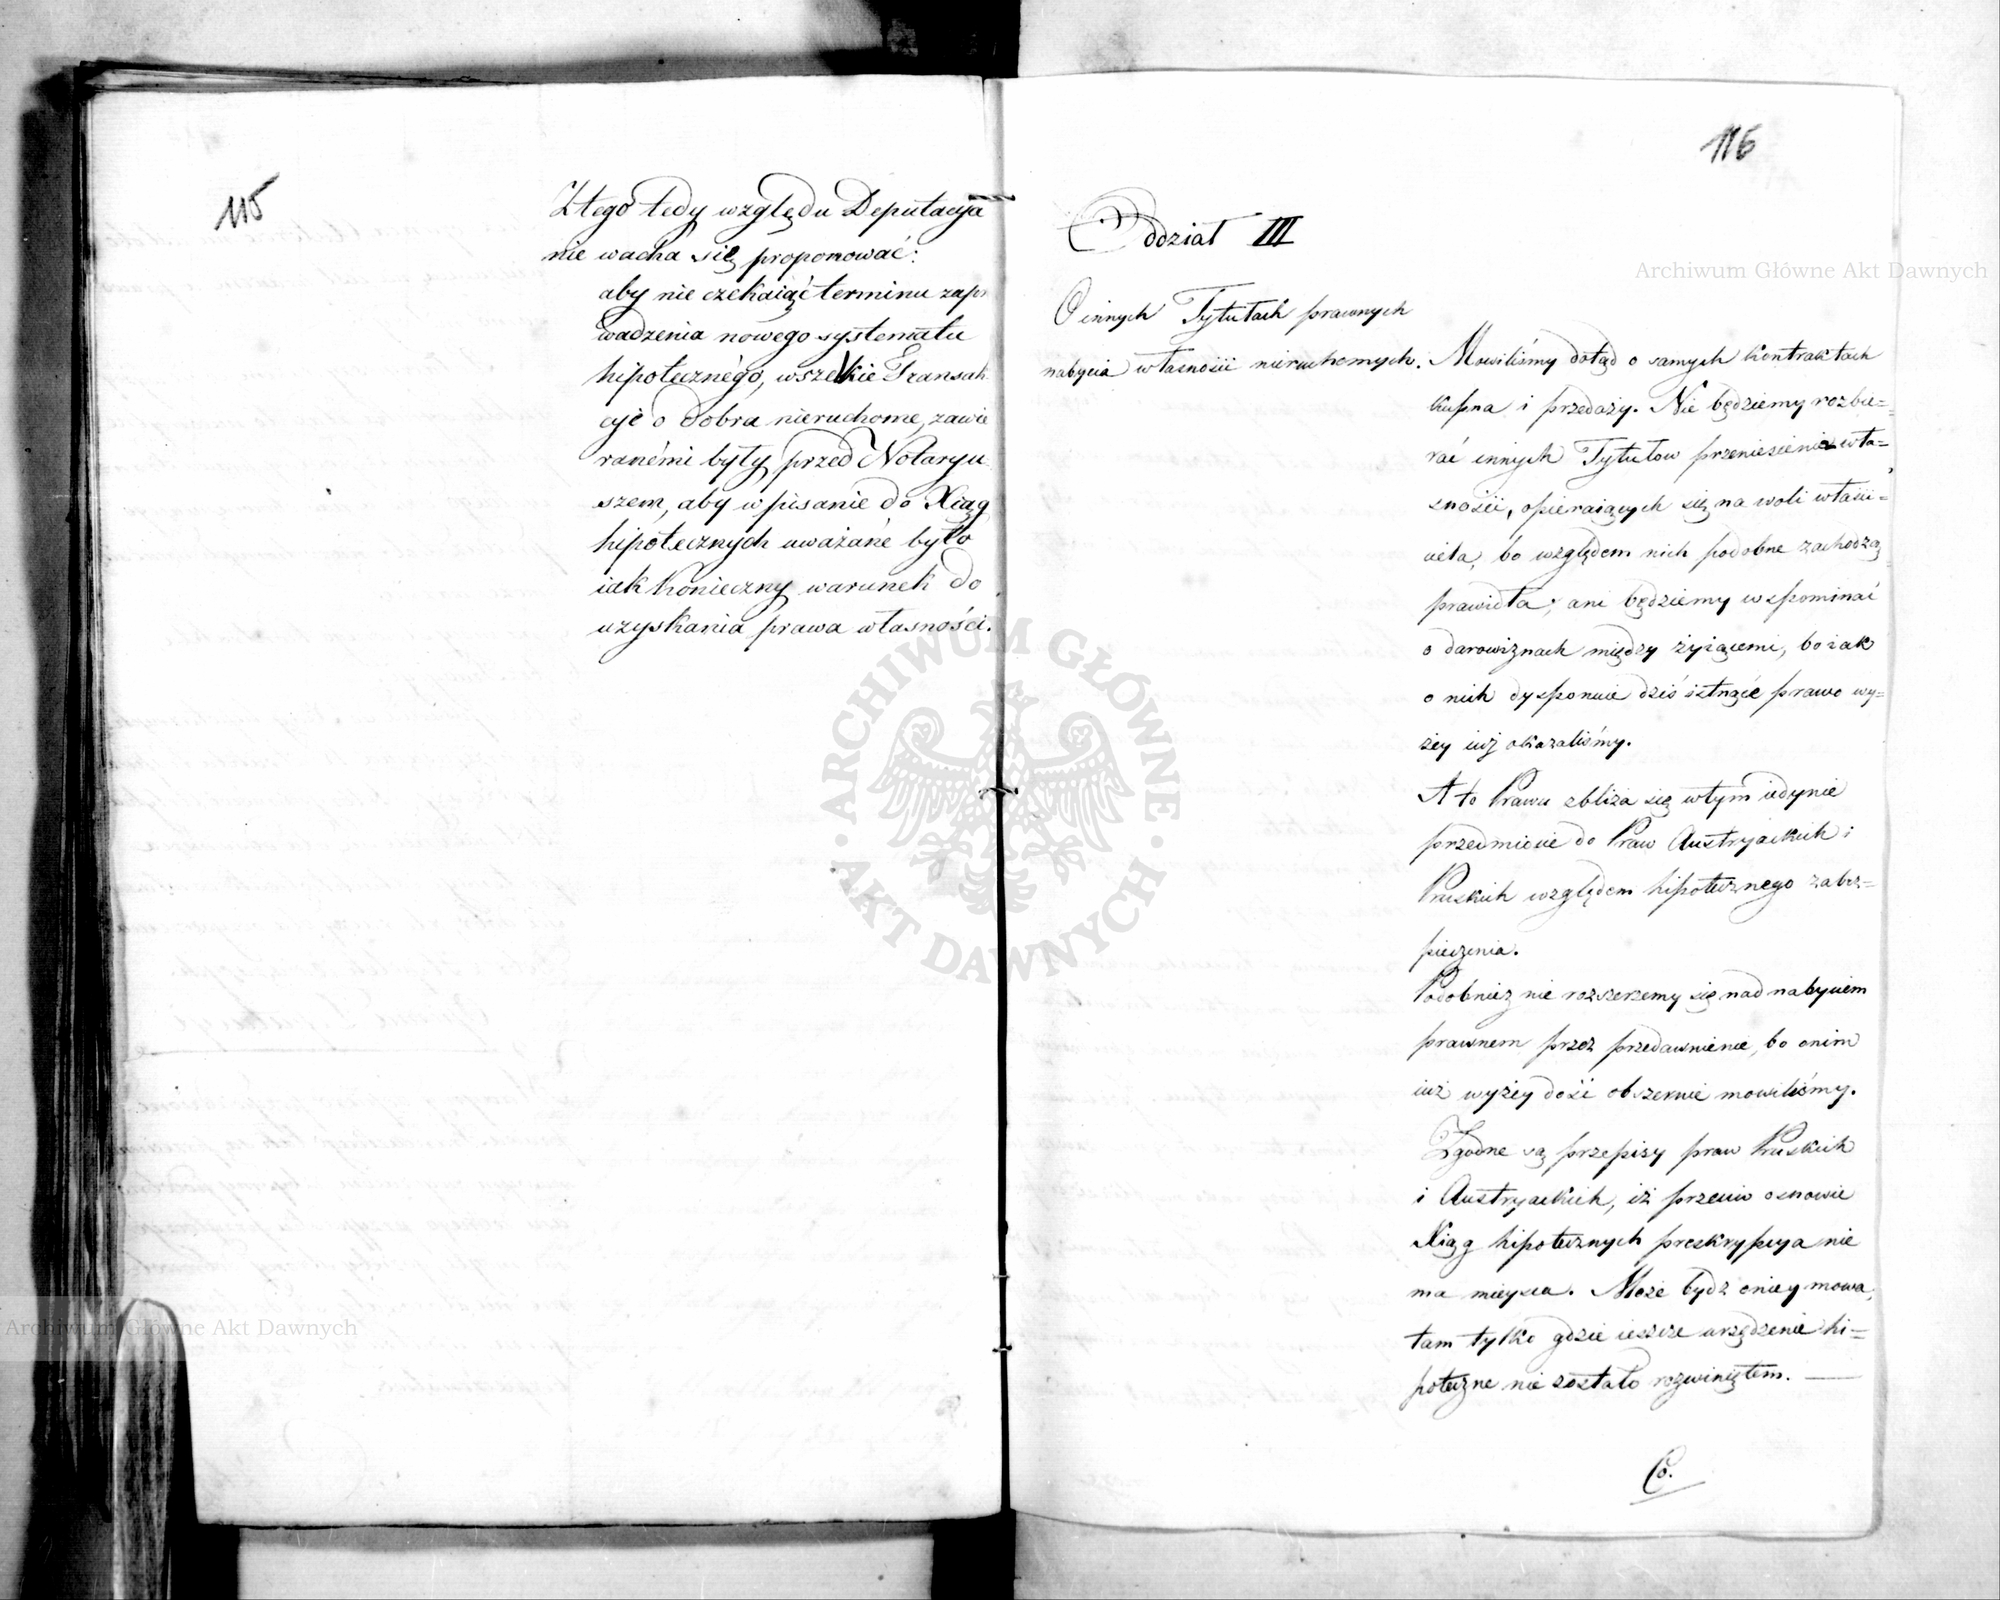 115
Z tego tedy względu Deputacyja
nie wacha się proponować:
aby nie czekaiąć terminu zapr
wadzenia nowego systematu
hipotecznégo, wszelkie Transak
cyie o dobra nieruchome, zawie
ranémi były przed Notaryu
szem, aby wpisanie do Xiąg
hipotecznych uważáne było
iak konieczny warunek do
uzyskania prawa własności.
116
Oddział III
O innych Tytułach prawnych
nabycia własności nieruchomych.
Mowiliśmy dotąd o samych kontraktach
kupna i przedaży. Nie będziemy rozbie=
rać innych Tytułow przeniesienia wła=
sności, opieraiących się na woli właści=
ciela, bo względem nich podobne zachodzą
prawidła; ani będziemy wspominać
o darowiznach między żyiącemi, bo iak
o nich dysponuie dziś istnące prawo wy=
żey iuż okazaliśmy.
A to Prawo zbliża się w tym iedynie
przedmiocie do Praw Austryackich i
Pruskich względem hipotecznego zabez=
pieczenia.
Podobnież nie rozszerzemy się nad nabyciem
prawnem przez przedawnienie, bo o nim
iuż wyżey dość obszernie mowiliśmy.
Zgodne są przepisy praw Pruskich
i Austryackich, iż przeciw osnowie
Xiąg hipotecznych preskrypcya nie
ma mieysca. Może bydź o niey mowa,
tam tylko gdzie ieszcze urządzenie hi=
poteczne nie zostało rozwiniętem.
Co.
Archiwum Główne Akt Dawnych
ARCHIWUM GŁÓWNE
AKT DAWNYCH
Archiwum Główne Akt Dawnych